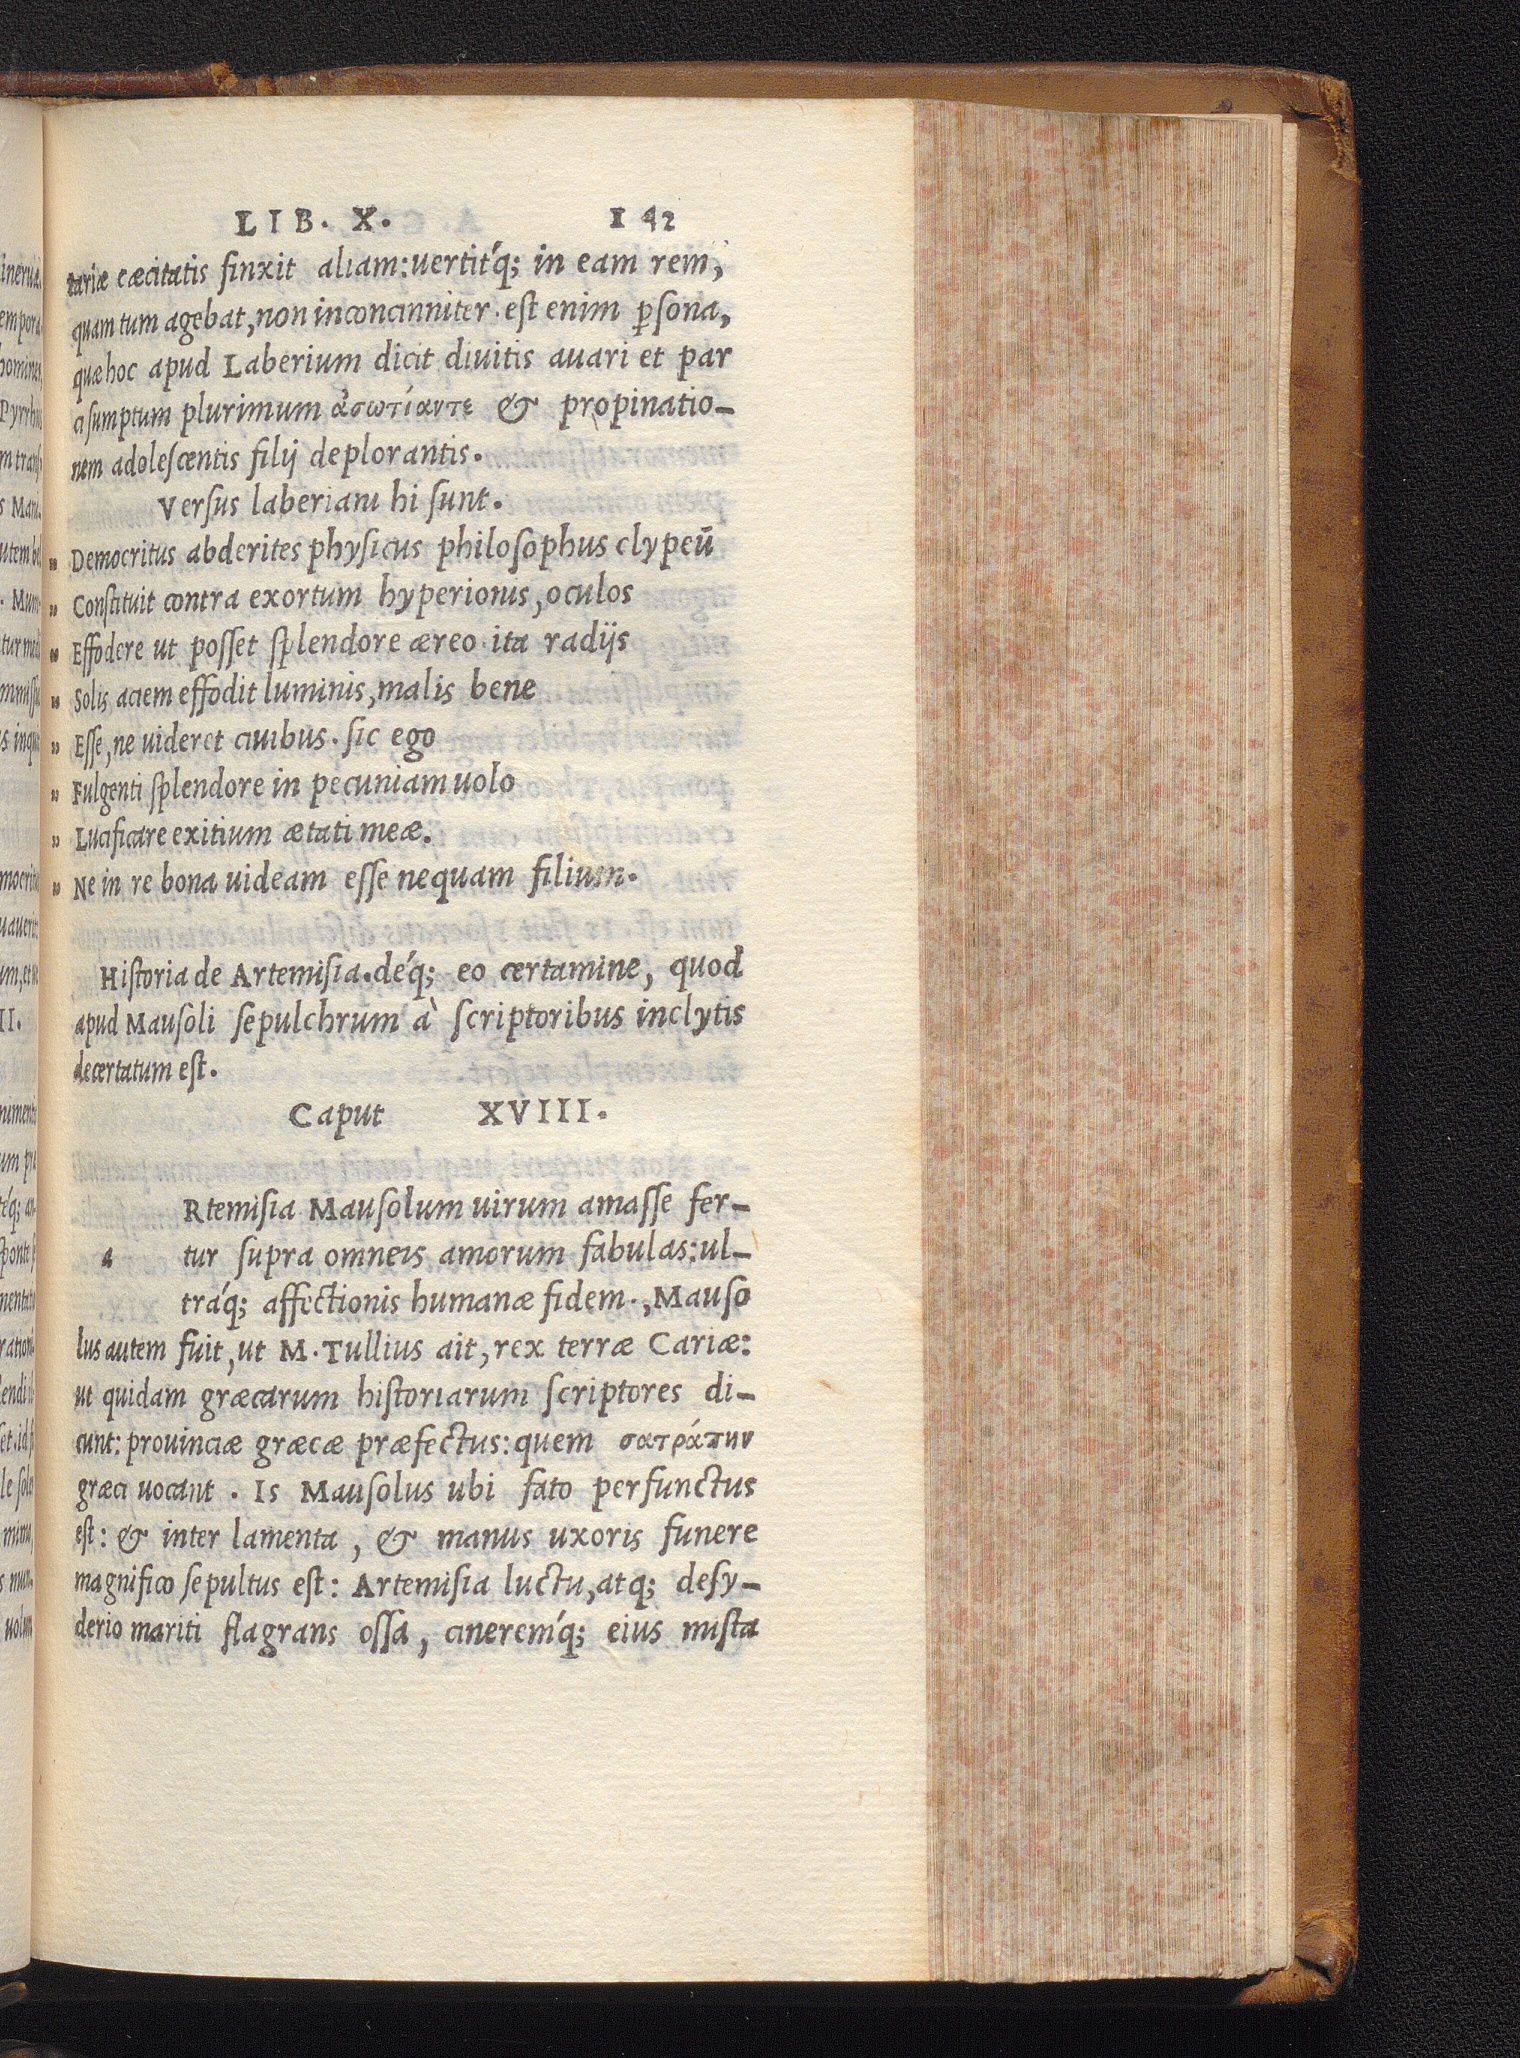 LIB. X. 142
tariæ cæcitatis finxit aliam:uertit'q; in eam rem,
quam tum agebat,non inconcinniter.est enim ꝑsona,
quæ hoc apud Laberium dicit diuitis auari et par
ci sumptum plurimum ἀσωτίαντε & propinatio-
nem adolescentis filij deplorantis.
Versus laberiani hi sunt.
» Democritus abderites physicus philosophus clypeū
» Constituit contra exortum hyperionis,oculos
» Effodere ut posset splendore æreo.ita radijs
» Solis aciem effodit luminis,malis bene
» Esse,ne uideret ciuibus.sic ego
» Fulgenti splendore in pecuniam uolo
» Lucificare exitium ætati meæ.
» Ne in re bona uideam esse nequam filium.
Historia de Artemisia.dé'q; eo certamine, quod
apud Mausoli sepulchrum à scriptoribus inclytis
decertatum est.
Caput XVIII.
Rtemisia Mausolum uirum amasse fer-
a tur supra omneis amorum fabulas:ul-
trá'q; affectionis humanæ fidem.,Mauso
lus autem fuit,ut M.Tullius ait,rex terræ Cariæ:
ut quidam græcarum historiarum scriptores di-
cunt:prouinciæ græcæ præfectus:quem σατράπην
græci uocant. Is Mausolus ubi fato perfunctus
est: & inter lamenta, & manus uxoris funere
magnifico sepultus est: Artemisia luctu,atq; desy-
derio mariti flagrans ossa, cinerem'q; eius mista